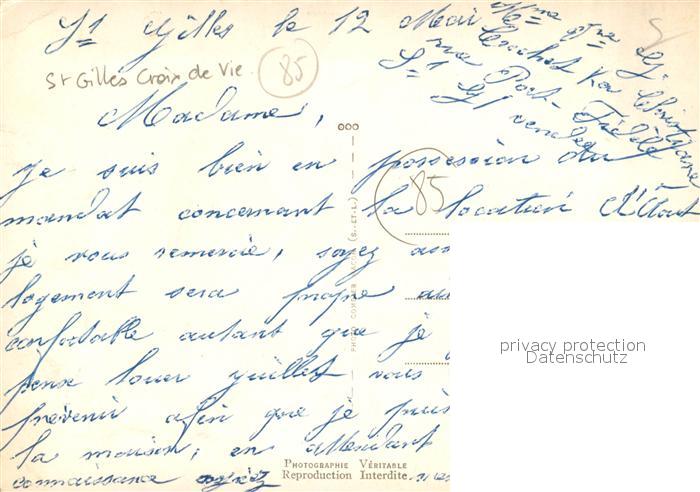 St Gilles le 12 Mai
St Gilles Croix de Vie
85
Mme Vve
Crochet
rue Port-Fidèle
St Gilles
Vendée
Madame,
je suis bien en possession du
mandat concernant la location d'Août
85
je vous remercie, soyez
logement sera propre
confortable autant que je
pense louer juillet vous
prévenir afin que je puis
la maison, en attendant
connaissance agréez
PHOTO COMBIER MACON (S.-ET-L.)
PHOTOGRAPHIE VÉRITABLE
Reproduction Interdite
privacy protection
Datenschutz